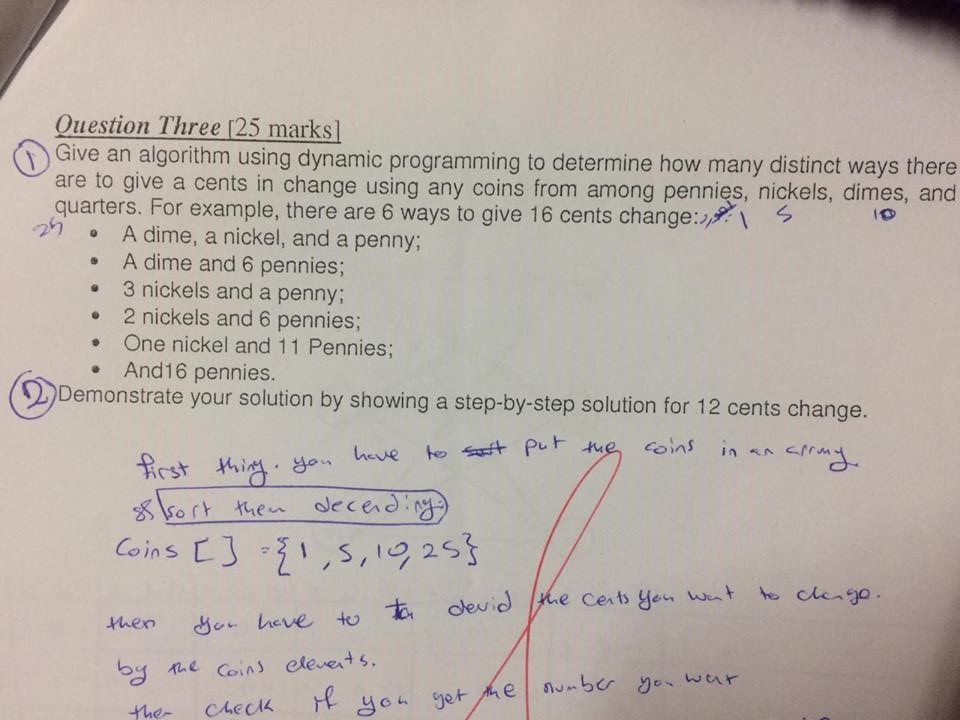 Question Three [25 marks]
1 Give an algorithm using dynamic programming to determine how many distinct ways there
are to give a cents in change using any coins from among pennies, nickels, dimes, and
quarters. For example, there are 6 ways to give 16 cents change: 1 5 10
25 • A dime, a nickel, and a penny;
• A dime and 6 pennies;
• 3 nickels and a penny;
• 2 nickels and 6 pennies;
• One nickel and 11 Pennies;
• And16 pennies.
2 Demonstrate your solution by showing a step-by-step solution for 12 cents change.
first thing. you have to put the coins in an array
& sort them decending.
Coins [ ] = {1, 5, 10, 25}
then you have to devid the cents you want to change.
by the coins elements.
then check if you get the number you want